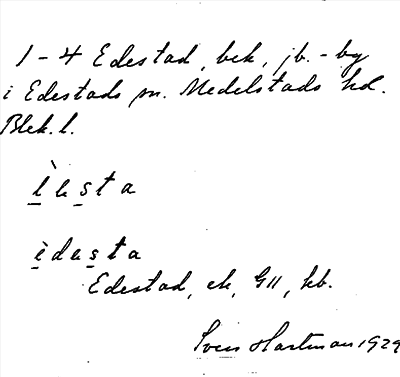 1-4 Edestad, bek, jb. - by
i Edestads sn. Medelstads hd.
Blek. l.
ìdasta
Edestad, ek, GII, hb.
Sven Hartman 1929